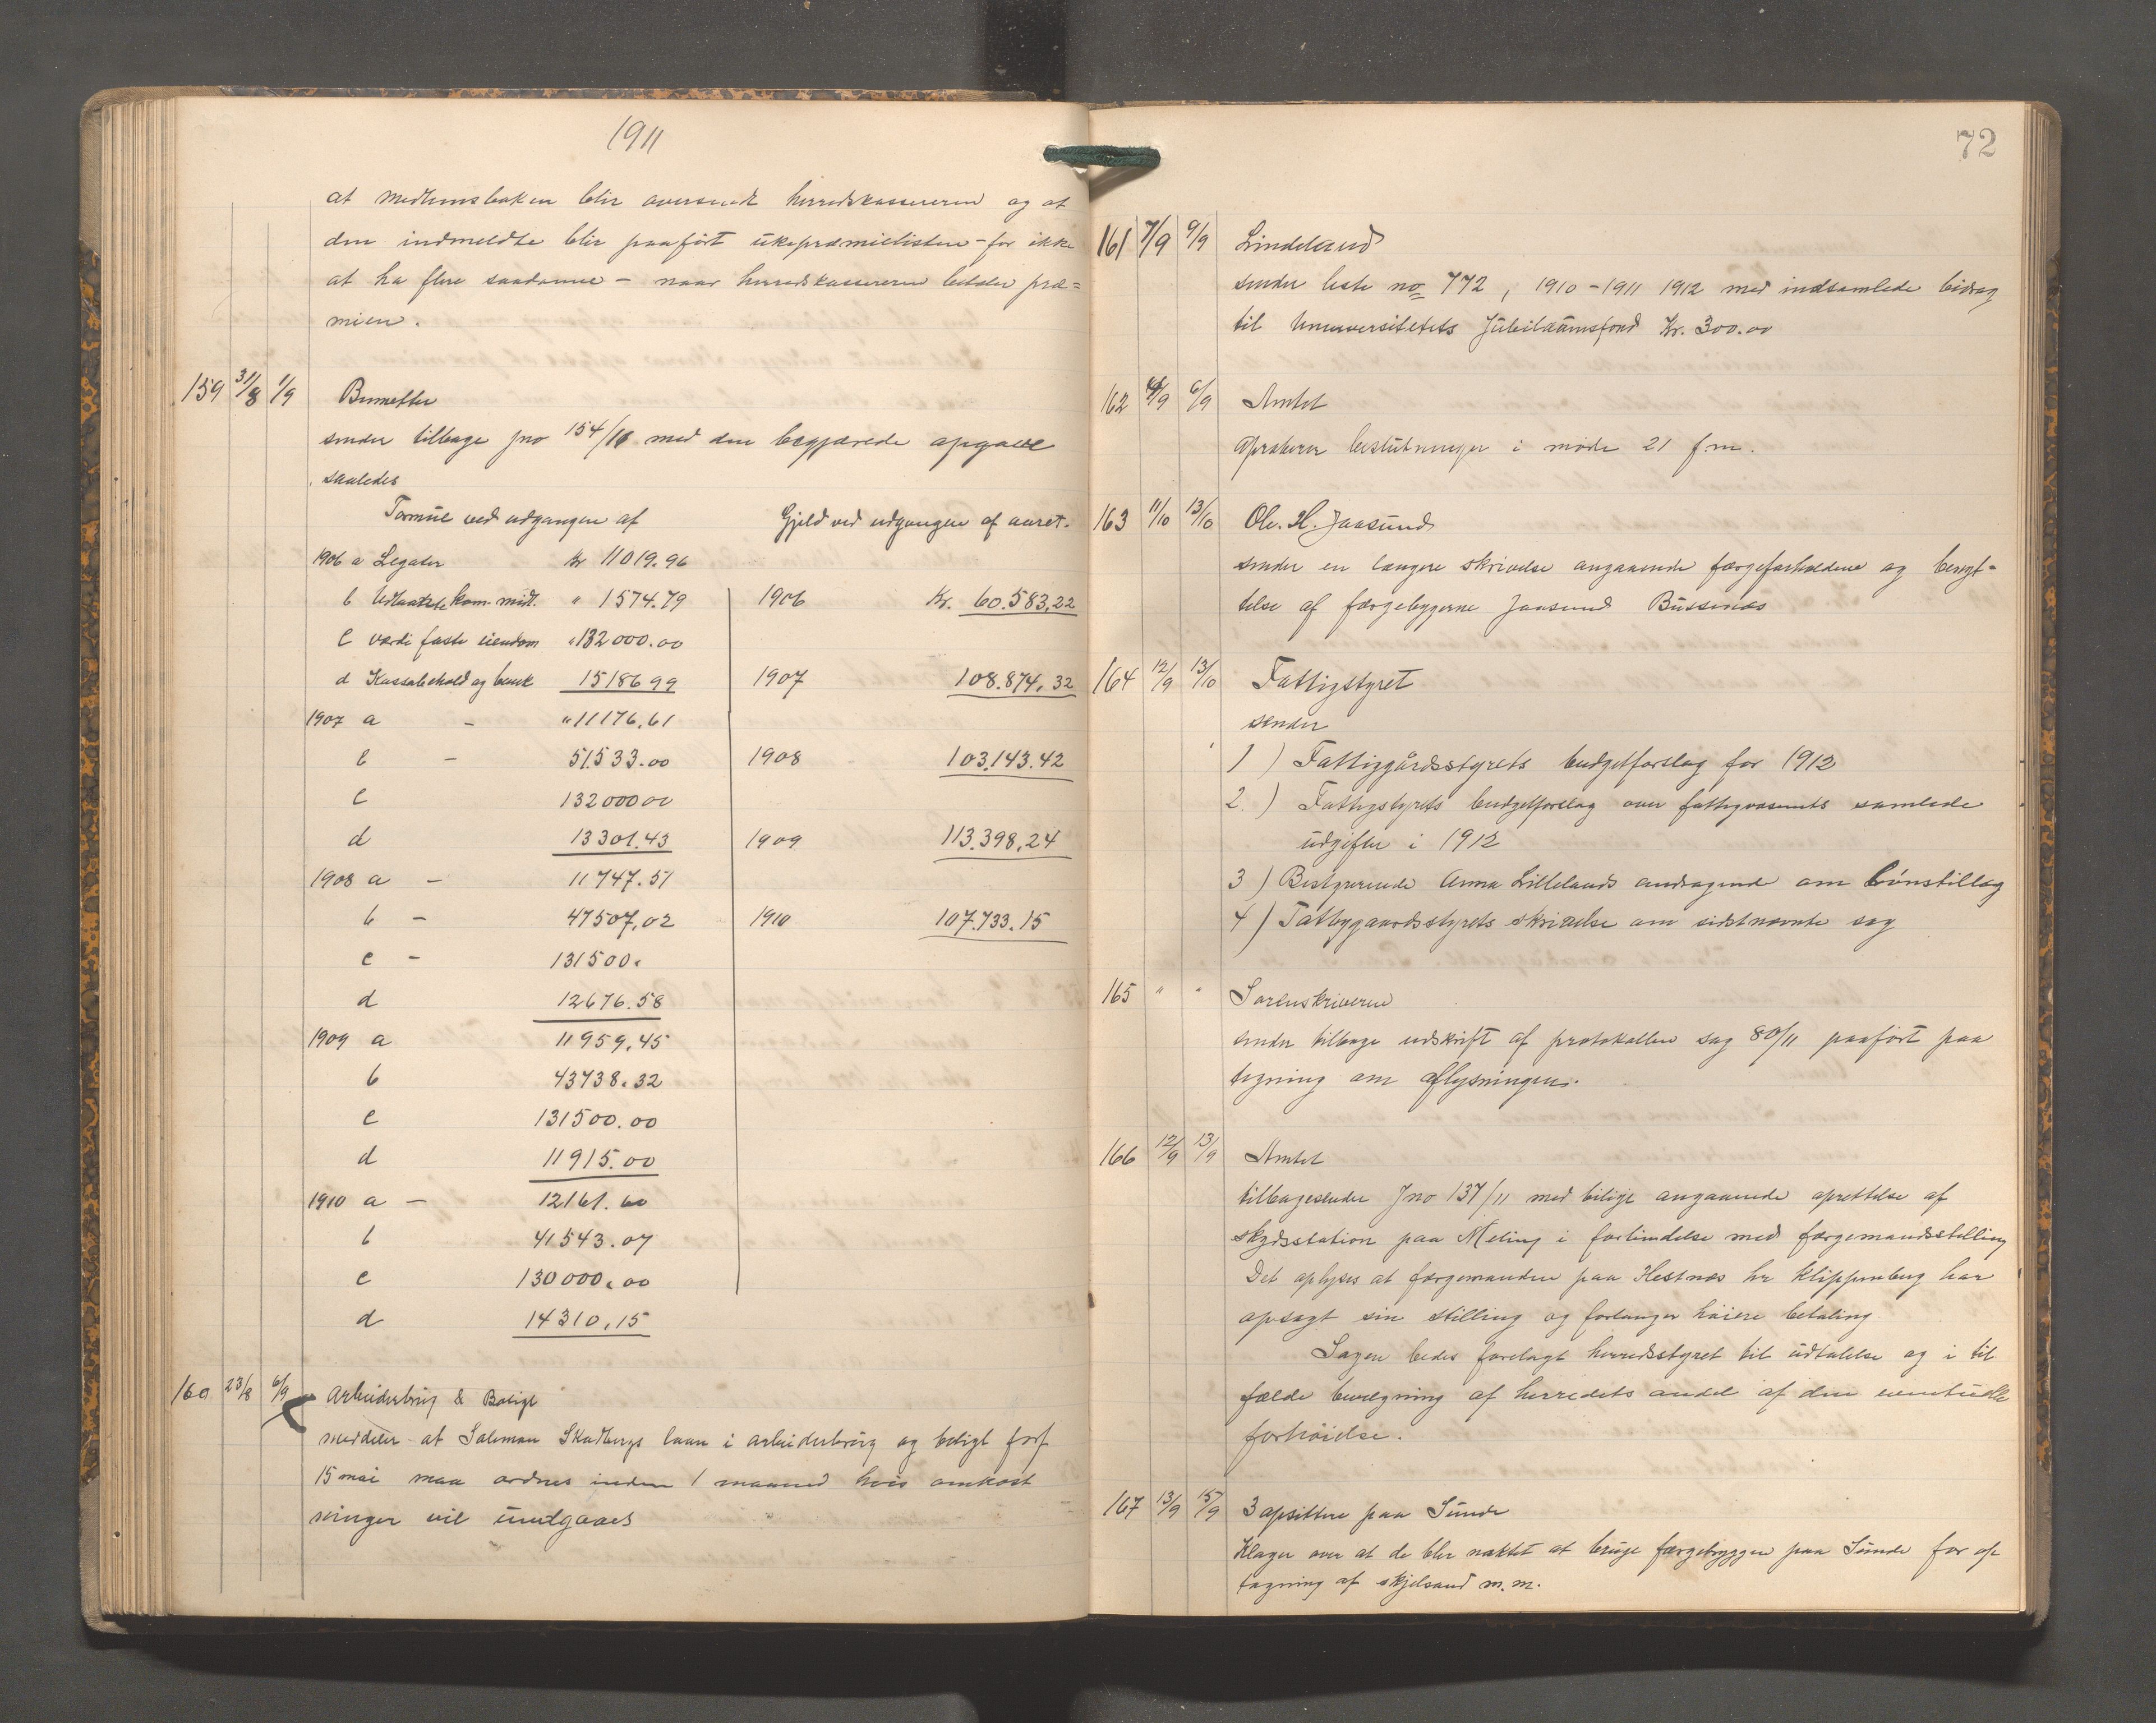 1911
at medlemsboken blir oversendt herredskassereren og at
den indmeldte blir paaført ukepræmielisten – for ikke
at ha flere saadanne – naar herredskassereren betaler præ=
mien.
159 31/8 1/9 Brunetter
sender tilbage jno 154/11 med den begjærede opgave
saaledes
Formue ved udgangen af Gjeld ved udgangen af aaret.
1906 a Legater Kr 11019.96
b Udlaante kom. midl. " 1574.79 1906 Kr. 60.583,22
c værdi faste eiendom " 132000.00
d Kassabehold og bank 1518699 1907 108.874,32
1907 a – " 11176.61
b – 51533.00 1908 103.143.42
c 13200000
d 13301.43 1909 113.398,24
1908 a – 11747.51
b – 47507,02 1910 107.733.15
c – 131500.
d 12676.58
1909 a 11959.45
b 43738.32
c 131500.00
d 11915.00
1910 a – 12161.60
b 41543.07
c 130000.00
d 14310,15
160 23/8 6/9 Arbeiderbrug & Boligl
meddeler at Saloman Skadbergs laan i arbeiderbrug og boligl forf
15 mai maa ordnes inden 1 maaned hvis omkost
ninger vil undgaaes
72
161 7/9 9/9 Lindeland
sender liste no 772, 1910–1911 1912 med indsamlede bidrag
til Universitetets Jubilæumsfond Kr. 300.00
162 4/9 6/9 Amtet
aproberer beslutninger i møde 21 f.m.
163 11/10 13/10 Ole. H. Jaasund
sender en længere skrivelse angaaende færgeforholdene og besigt-
telse af færgebryggerne Jaasund Bussenæs
164 12/9 13/10 Fattigstyret
sender
1) Fattiggårdsstyrets budgetforslag for 1912
2.) Fattigstyrets budgetforslag over fattigvæsenets samlede
udgifter i 1912
3) Bestyrerinde Anna Lillelands andragende om lønstillæg
4) Fattiggaardsstyrets skrivelse om sidstnævnte sag
165 " " Sorenskriveren
sender tilbage udskrift af protokollen sag 80/11 paaført paa
tegning om aflysningen.
166 12/9 13/9 Amtet
tilbagesender Jno 137/11 med bilage angaaende oprettelse af
skydsstation paa Meling i forbindelse med færgemandsstilling
Det oplyses at færgemanden paa Hestnæs hr Klippenberg har
opsagt sin stilling og forlanger høiere betaling
Sagen bedes forelagt herredsstyret til udtalelse og i til
fælde bevilgning af herredets andel af den eventuelle
forhøielse.
167 13/9 15/9 3 opsittere paa Sunde
Klager over at de blir nektet at bruge færgebryggen paa Sunde for op
tagning af skjelsand m.m.